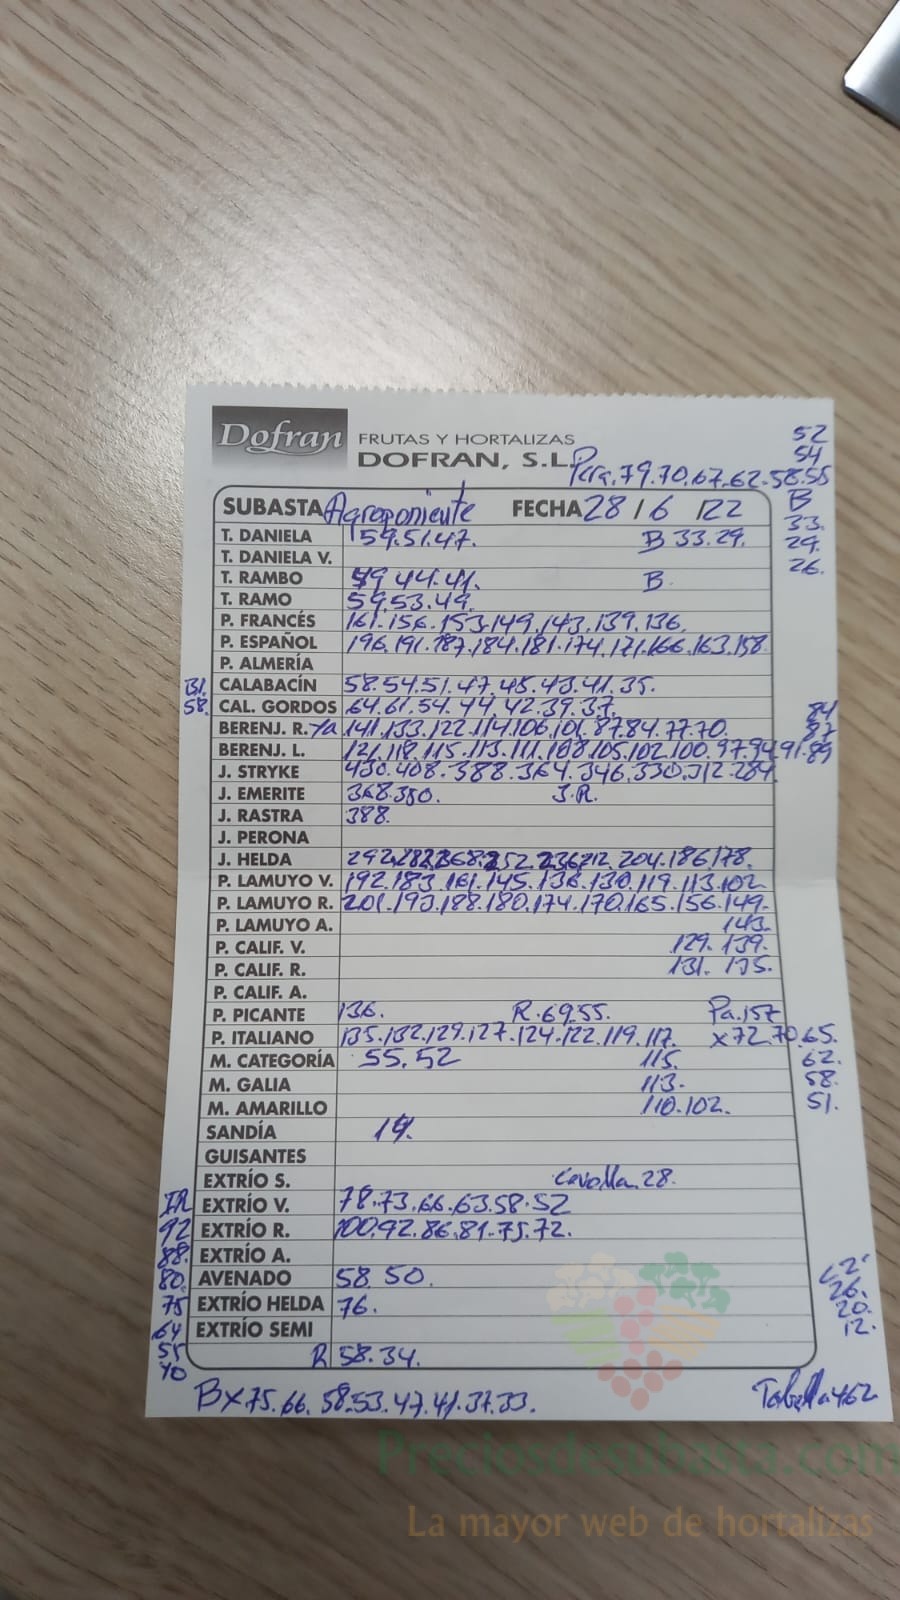 Dofran FRUTAS Y HORTALIZAS
DOFRAN, S.L.
79.70.67.62.58.55
52
54
SUBASTA Agroponiente FECHA 28/6/22
B
33.
29.
26.
T. DANIELA 59.51.47. B 33.29.
T. DANIELA V.
T. RAMBO 44.41. B.
T. RAMO 59.53.49.
P. FRANCÉS 161.156.153.149.143.139.136.
P. ESPAÑOL 196.191.187.184.181.174.171.166.163.158
P. ALMERÍA
CALABACÍN 58.54.51.47.45.43.41.35.
58. CAL. GORDOS 64.61.54.44.42.39.37.
BERENJ. R. Ya 141.133.122.114.106.101.87.84.77.70. 84
87
BERENJ. L. 121.118.115.113.111.108.105.102.100.97.94.91.89
J. STRYKE 430.408.388.364.346.330.312.284
J. EMERITE 368.350. J.R.
J. RASTRA 388.
J. PERONA
J. HELDA 292.282.268.252.236.212.204.186.178.
P. LAMUYO V. 192.183.161.145.136.130.119.113.102
P. LAMUYO R. 201.193.188.180.174.170.165.156.149.
P. LAMUYO A. 143.
P. CALIF. V. 129.139.
P. CALIF. R. 131.135.
P. CALIF. A.
P. PICANTE 136. R.69.55. Pa.157
P. ITALIANO 135.132.129.127.124.122.119.117. x72.70.65.
M. CATEGORÍA 55.52 115. 62.
M. GALIA 113. 58.
M. AMARILLO 110.102. 51.
SANDÍA 19.
GUISANTES
EXTRÍO S. 28.
EXTRÍO V. 78.73.66.63.58.52
92 EXTRÍO R. 100.92.86.81.75.72.
88. EXTRÍO A.
80. AVENADO 58.50. 26.
75 EXTRÍO HELDA 76. 20.
64 EXTRÍO SEMI 12.
55 R 58.34.
40
Bx75.66.58.53.47.41.37.33. Tabella 462
Preciosdesubasta.com
La mayor web de hortalizas